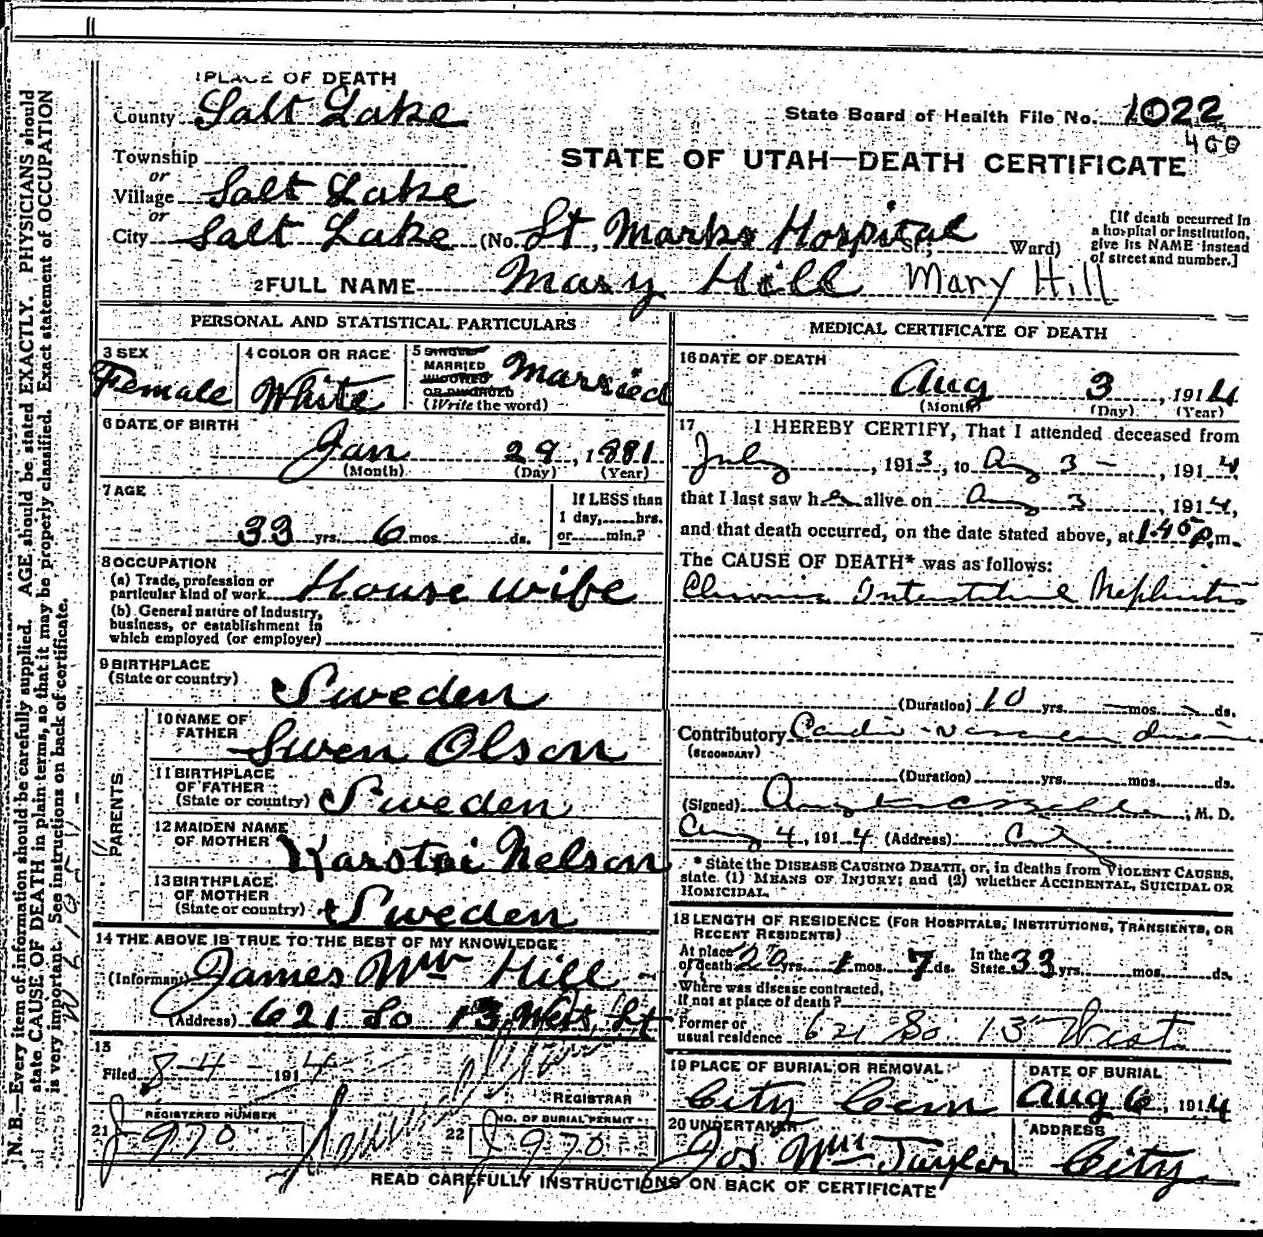 1 PLACE OF DEATH
County Salt Lake
State Board of Health File No. 1022
400
Township
or
Village Salt Lake
or
City Salt Lake (No. St. Marks Hospital St.; Ward)
STATE OF UTAH—DEATH CERTIFICATE
[If death occurred in
a hospital or institution,
give its NAME instead
of street and number.]
2 FULL NAME Mary Hill Mary Hill
PERSONAL AND STATISTICAL PARTICULARS
3 SEX
Female
4 COLOR OR RACE
White
5 SINGLE
MARRIED
WIDOWED
OR DIVORCED
(Write the word)
Married
6 DATE OF BIRTH
Jan 29, 1881
(Month) (Day) (Year)
7 AGE
33 yrs. 6 mos. ds.
If LESS than
1 day, hrs.
or min.?
8 OCCUPATION
(a) Trade, profession or
particular kind of work House wife
(b) General nature of Industry,
business, or establishment in
which employed (or employer)
9 BIRTHPLACE
(State or country) Sweden
PARENTS
10 NAME OF
FATHER Swen Olson
11 BIRTHPLACE
OF FATHER
(State or country) Sweden
12 MAIDEN NAME
OF MOTHER Karstni Nelson
13 BIRTHPLACE
OF MOTHER
(State or country) Sweden
14 THE ABOVE IS TRUE TO THE BEST OF MY KNOWLEDGE
(Informant) James Wm Hill
(Address) 621 So 13 West St
15
Filed 8-4- 1914
REGISTRAR
21 REGISTERED NUMBER
J 970
22 NO. OF BURIAL PERMIT
J 970
MEDICAL CERTIFICATE OF DEATH
16 DATE OF DEATH
Aug 3, 1914
(Month) (Day) (Year)
17 I HEREBY CERTIFY, That I attended deceased from
July, 1913, to Aug 3 -, 1914
that I last saw her alive on Aug 3, 1914,
and that death occurred, on the date stated above, at 1.45 P.m.
The CAUSE OF DEATH* was as follows:
Chronic Interstitial Nephritis
(Duration) 10 yrs. — mos. — ds.
Contributory Cardio-vascular disease
(SECONDARY)
(Duration) yrs. mos. ds.
(Signed) , M. D.
Aug 4, 1914 (Address) City
* State the DISEASE CAUSING DEATH, or, in deaths from VIOLENT CAUSES,
state (1) MEANS OF INJURY; and (2) whether ACCIDENTAL, SUICIDAL OR
HOMICIDAL.
18 LENGTH OF RESIDENCE (FOR HOSPITALS, INSTITUTIONS, TRANSIENTS, OR
RECENT RESIDENTS)
At place
of death yrs. 1 mos. 7 ds. In the
State 33 yrs. mos. ds.
Where was disease contracted,
if not at place of death?
Former or
usual residence 621 So. 13th West
19 PLACE OF BURIAL OR REMOVAL
City Cem
DATE OF BURIAL
Aug 6, 1914
20 UNDERTAKER
Jos Wm Taylor
ADDRESS
City
READ CAREFULLY INSTRUCTIONS ON BACK OF CERTIFICATE
N. B.—Every item of information should be carefully supplied. AGE should be stated EXACTLY. PHYSICIANS should
state CAUSE OF DEATH in plain terms, so that it may be properly classified. Exact statement of OCCUPATION
is very important. See instructions on back of certificate.